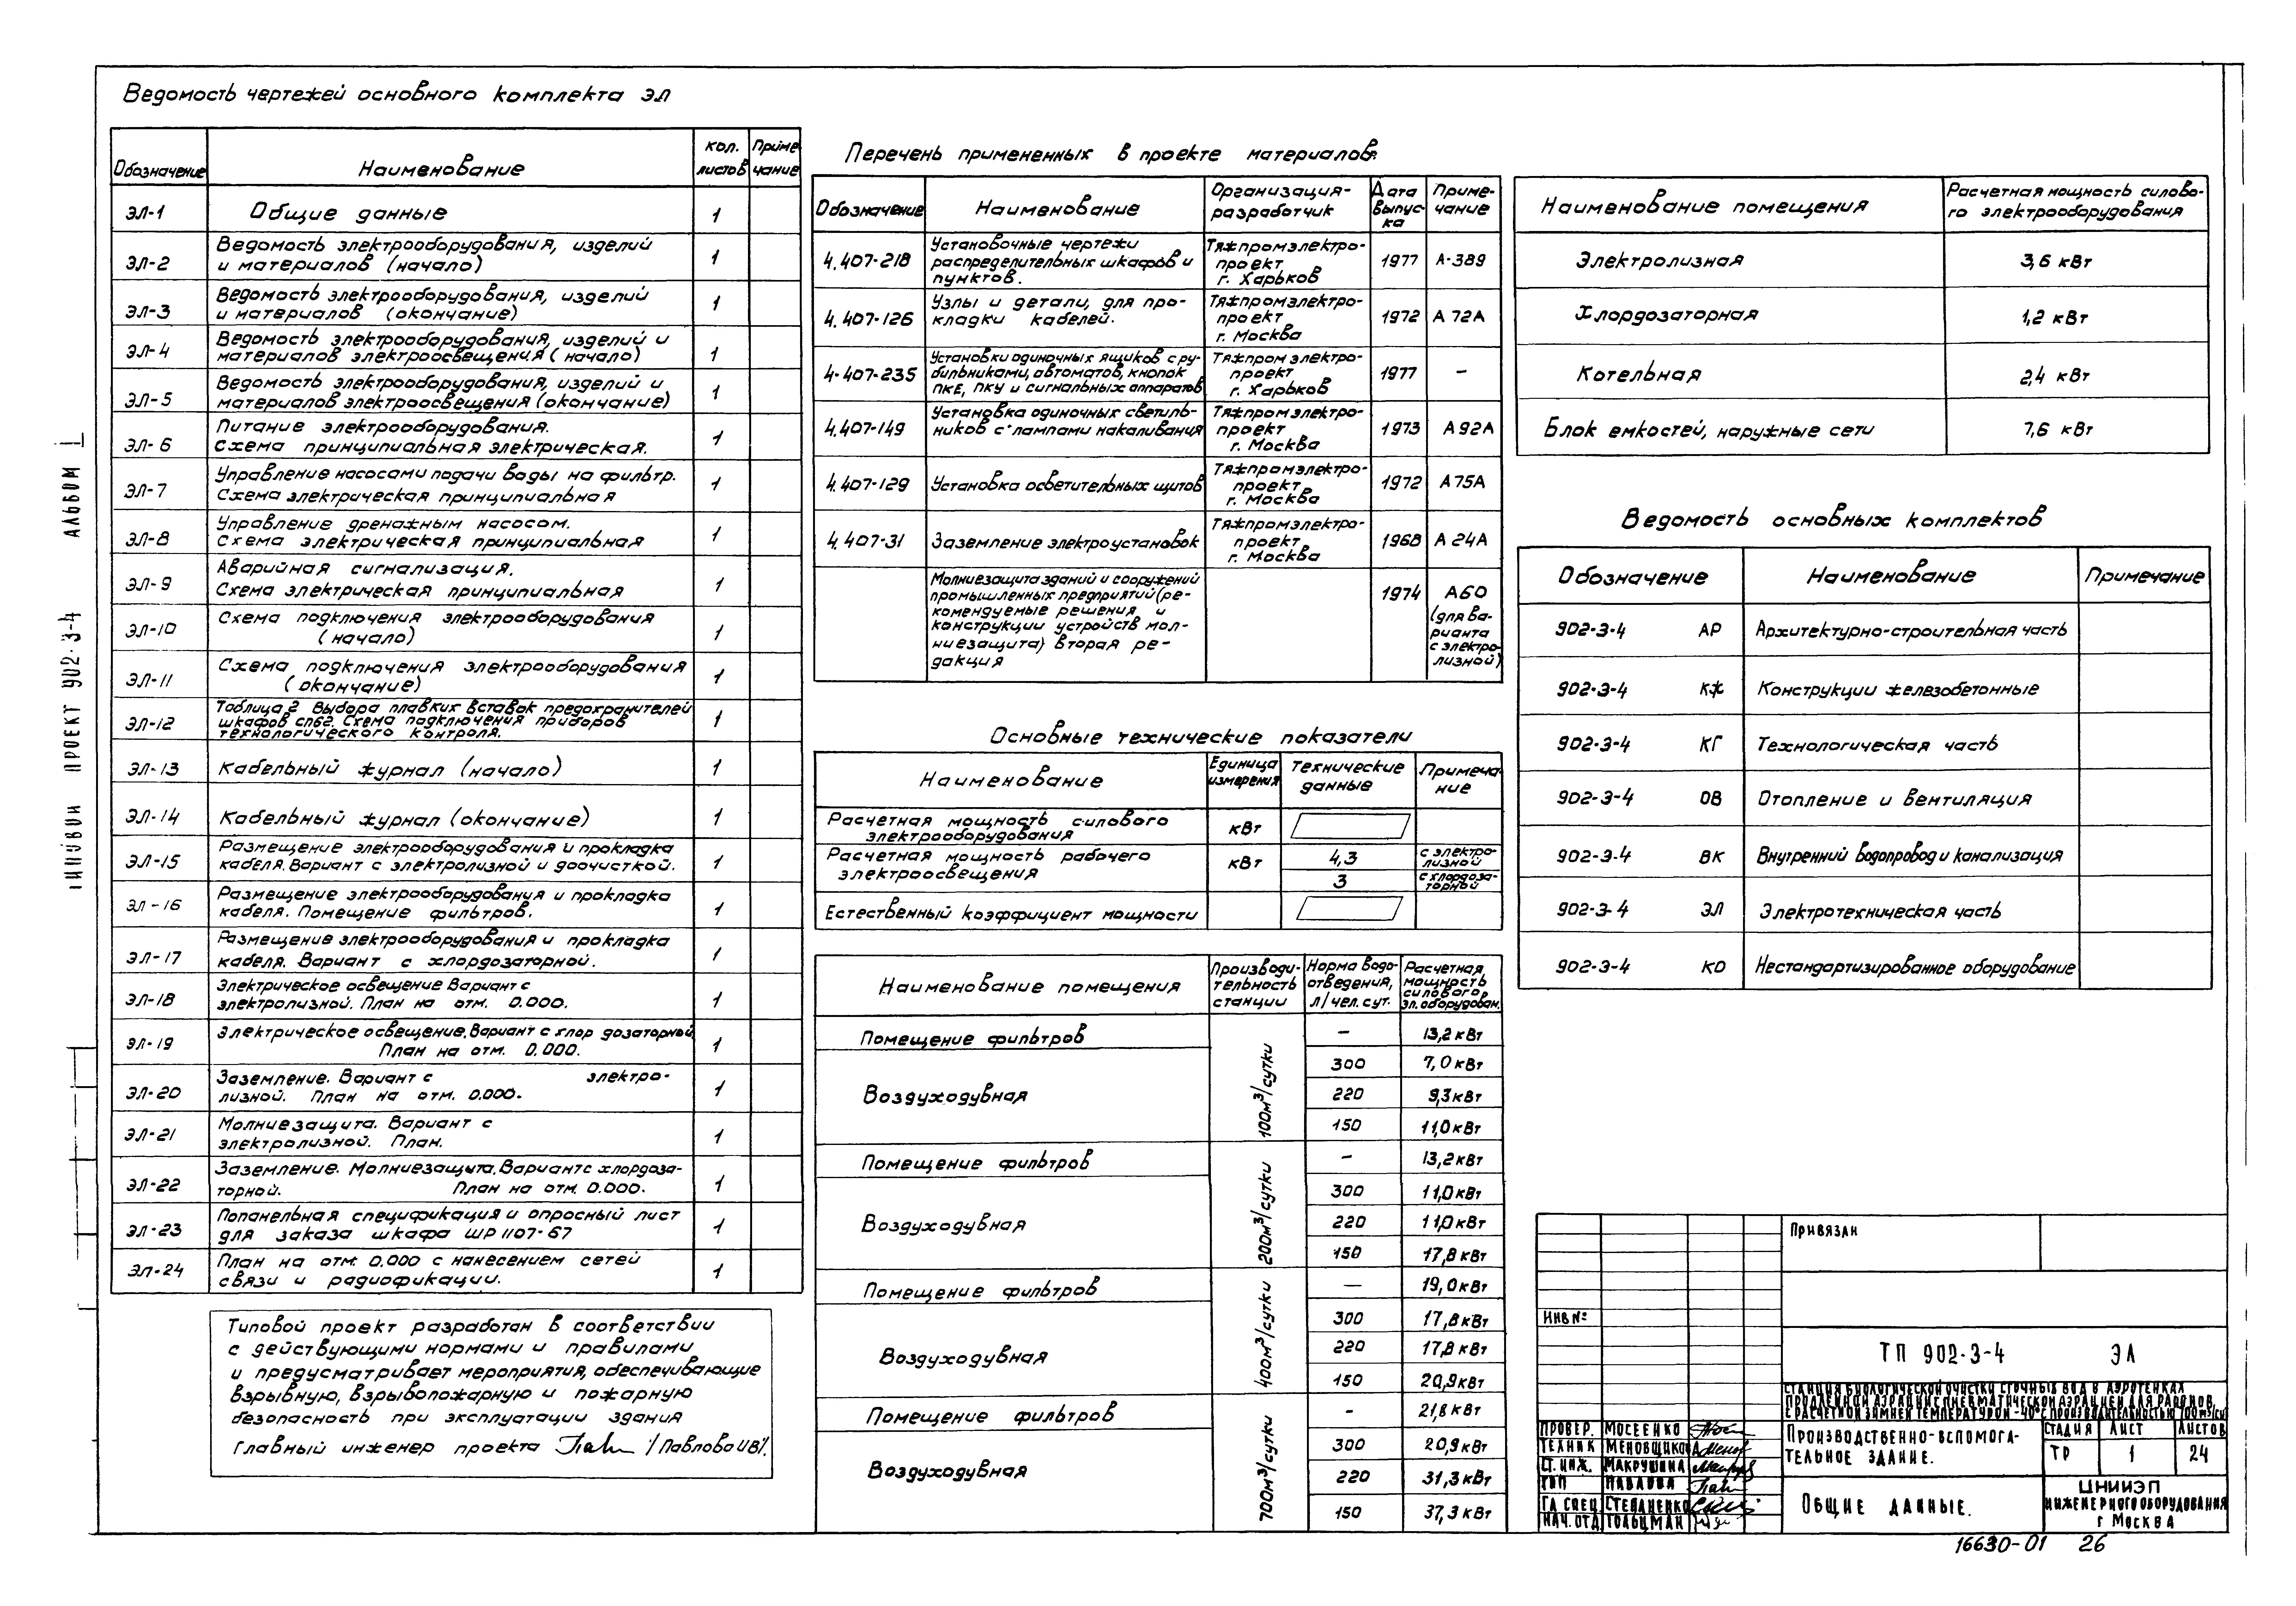 Ведомость чертежей основного комплекта ЭЛ
Обозначение Наименование Кол. листов Примечание
ЭЛ-1 Общие данные 1
ЭЛ-2 Ведомость электрооборудования, изделий
и материалов (начало) 1
ЭЛ-3 Ведомость электрооборудования, изделий
и материалов (окончание) 1
ЭЛ-4 Ведомость электрооборудования, изделий и
материалов электроосвещения (начало) 1
ЭЛ-5 Ведомость электрооборудования, изделий и
материалов электроосвещения (окончание) 1
ЭЛ-6 Питание электрооборудования.
Схема принципиальная электрическая. 1
ЭЛ-7 Управление насосами подачи воды на фильтр.
Схема электрическая принципиальная 1
ЭЛ-8 Управление дренажным насосом.
Схема электрическая принципиальная 1
ЭЛ-9 Аварийная сигнализация.
Схема электрическая принципиальная 1
ЭЛ-10 Схема подключения электрооборудования
(начало) 1
ЭЛ-11 Схема подключения электрооборудования
(окончание) 1
ЭЛ-12 Таблица 2 Выбора плавких вставок предохранителей
шкафов сп62. Схема подключения приборов
технологического контроля. 1
ЭЛ-13 Кабельный журнал (начало) 1
ЭЛ-14 Кабельный журнал (окончание) 1
ЭЛ-15 Размещение электрооборудования и прокладка
кабеля. Вариант с электролизной и доочисткой. 1
ЭЛ-16 Размещение электрооборудования и прокладка
кабеля. Помещение фильтров. 1
ЭЛ-17 Размещение электрооборудования и прокладка
кабеля. Вариант с хлордозаторной. 1
ЭЛ-18 Электрическое освещение Вариант с
электролизной. План на отм. 0.000. 1
ЭЛ-19 Электрическое освещение. Вариант с хлор дозаторной.
План на отм. 0.000. 1
ЭЛ-20 Заземление. Вариант с электро-
лизной. План на отм. 0.000. 1
ЭЛ-21 Молниезащита. Вариант с
электролизной. План. 1
ЭЛ-22 Заземление. Молниезащита. Вариант с хлордоза-
торной. План на отм. 0.000. 1
ЭЛ-23 Попанельная спецификация и опросный лист
для заказа шкафа ШР1107-67 1
ЭЛ-24 План на отм. 0.000 с нанесением сетей
связи и радиофикации. 1
Типовой проект разработан в соответствии
с действующими нормами и правилами
и предусматривает мероприятия, обеспечивающие
взрывную, взрывопожарную и пожарную
безопасность при эксплуатации здания
Главный инженер проекта /Павлова И.В/.
Перечень примененных в проекте материалов.
Обозначение Наименование Организация-разработчик Дата выпуска Примечание
4.407-218 Установочные чертежи
распределительных шкафов и
пунктов. Тяжпромэлектро-
проект
г. Харьков 1977 А-389
4.407-126 Узлы и детали, для про-
кладки кабелей. Тяжпромэлектро-
проект
г. Москва 1972 А72А
4.407-235 Установки одиночных ящиков с ру-
бильниками, автоматов, кнопок
ПКЕ, ПКУ и сигнальных аппаратов Тяжпромэлектро-
проект
г. Харьков 1977 –
4.407-149 Установка одиночных светиль-
ников с лампами накаливания Тяжпромэлектро-
проект
г. Москва 1973 А92А
4.407-129 Установка осветительных щитов Тяжпромэлектро-
проект
г. Москва 1972 А75А
4.407-31 Заземление электроустановок Тяжпромэлектро-
проект
г. Москва 1968 А24А
Молниезащита зданий и сооружений
промышленных предприятий (ре-
комендуемые решения и
конструкции устройств мол-
ниезащита) вторая ре-
дакция 1974 А60
(для ва-
рианта
с электро-
лизной)
Основные технические показатели
Наименование Единица измерения Технические данные Примечание
Расчетная мощность силового
электрооборудования кВт
Расчетная мощность рабочего
электроосвещения кВт 4,3 с электро-
лизной
3 с хлордоза-
торной
Естественный коэффициент мощности
Наименование помещения Производительность станции Норма водоотведения, л/чел.сут. Расчетная мощность силового эл. оборудован.
Помещение фильтров 100м³/сутки – 13,2 кВт
Воздуходувная 300 7,0 кВт
220 9,3 кВт
150 11,0 кВт
Помещение фильтров 200м³/сутки – 13,2 кВт
Воздуходувная 300 11,0 кВт
220 11,0 кВт
150 17,8 кВт
Помещение фильтров 400м³/сутки — 19,0 кВт
Воздуходувная 300 17,8 кВт
220 17,8 кВт
150 20,9 кВт
Помещение фильтров 700м³/сутки – 21,8 кВт
Воздуходувная 300 20,9 кВт
220 31,3 кВт
150 37,3 кВт
Наименование помещения Расчетная мощность силово-
го электрооборудования
Электролизная 3,6 кВт
Хлордозаторная 1,2 кВт
Котельная 2,4 кВт
Блок емкостей, наружные сети 7,6 кВт
Ведомость основных комплектов
Обозначение Наименование Примечание
902-3-4 АР Архитектурно-строительная часть
902-3-4 КЖ Конструкции железобетонные
902-3-4 КГ Технологическая часть
902-3-4 ОВ Отопление и вентиляция
902-3-4 ВК Внутренний водопровод и канализация
902-3-4 ЭЛ Электротехническая часть
902-3-4 КО Нестандартизированное оборудование
Привязан
ИНВ №
ТП 902-3-4 ЭЛ
СТАНЦИЯ БИОЛОГИЧЕСКОЙ ОЧИСТКИ СТОЧНЫХ ВОД В АЭРОТЕНКАХ
ПРОДЛЕННОЙ АЭРАЦИИ С ПНЕВМАТИЧЕСКОЙ АЭРАЦИЕЙ ДЛЯ РАЙОНОВ
С РАСЧЕТНОЙ ЗИМНЕЙ ТЕМПЕРАТУРОЙ -40°С ПРОИЗВОДИТЕЛЬНОСТЬЮ 700м³/сут
ПРОВЕР. МОСЕЕНКО
ТЕХНИК МЕНОВЩИКОВА
СТ. ИНЖ. МАКРУШИНА
ГИП ПАВЛОВА
ГЛ. СПЕЦ СТЕПАНЕНКО
НАЧ. ОТД ГОЛЬЦМАН
ПРОИЗВОДСТВЕННО-ВСПОМОГА-
ТЕЛЬНОЕ ЗДАНИЕ.
СТАДИЯ ЛИСТ ЛИСТОВ
ТР 1 24
ОБЩИЕ ДАННЫЕ.
ЦНИИЭП
ИНЖЕНЕРНОГО ОБОРУДОВАНИЯ
г МОСКВА
16630-01 26
ТИПОВОЙ ПРОЕКТ 902-3-4 АЛЬБОМ I